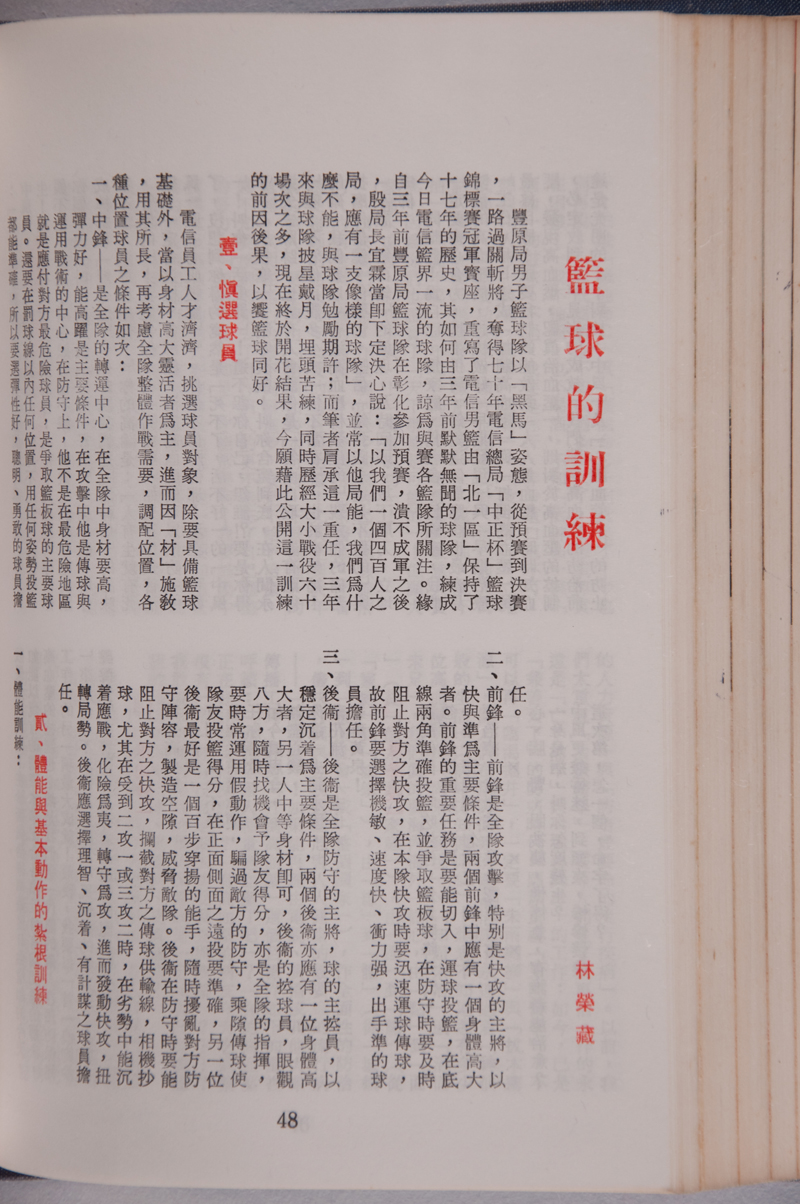 籃球的訓練
林榮藏
豐原局男子籃球隊以「黑馬」姿態，從預賽到決賽
，一路過關斬將，奪得七十年電信總局「中正杯」籃球
錦標賽冠軍寳座，重寫了電信男籃由「北一區」保持了
十七年的歷史，其如何由三年前默默無聞的球隊，練成
今日電信籃界一流的球隊，諒爲與賽各籃隊所關注。緣
自三年前豐原局籃球隊在彰化參加預賽，潰不成軍之後
，殷局長宜霖當卽下定決心說：「以我們一個四百人之
局，應有一支像樣的球隊」，並常以他局能，我們爲什
麼不能，與球隊勉勵期許；而筆者肩承這一重任，三年
來與球隊披星戴月，埋頭苦練，同時歷經大小戰役六十
場次之多，現在終於開花結果，今願藉此公開這一訓練
的前因後果，以饗籃球同好。
壹、愼選球員
電信員工人才濟濟，挑選球員對象，除要具備籃球
基礎外，當以身材高大靈活者爲主，進而因「材」施敎
，用其所長，再考慮全隊整體作戰需要，調配位置，各
種位置球員之條件如次：
一、中鋒——是全隊的轉運中心，在全隊中身材要高，
彈力好，能高躍是主要條件，在攻擊中他是傳球與
運用戰術的中心，在防守上，他不是在最危險地區
就是應付對方最危險球員，是爭取籃板球的主要球
員。還要在罰球線以內任何位置，用任何姿勢投籃
都能準確，所以要選彈性好，聰明、勇敢的球員擔
任。
二、前鋒——前鋒是全隊攻擊，特別是快攻的主將，以
快與準爲主要條件，兩個前鋒中應有一個身體高大
者。前鋒的重要任務是要能切入，運球投籃，在底
線兩角準確投籃，並爭取籃板球，在防守時要及時
阻止對方之快攻，在本隊快攻時要迅速運球傳球，
故前鋒要選擇機敏、速度快、衝力强，出手準的球
員擔任。
三、後衞——後衞是全隊防守的主將，球的主控員，以
穩定沉着爲主要條件，兩個後衞亦應有一位身體高
大者，另一人中等身材卽可，後衞的控球員，眼觀
八方，隨時找機會予隊友得分，亦是全隊的指揮，
要時常運用假動作，騙過敵方的防守，乘隙傳球使
隊友投籃得分，在正面側面之遠投要準確，另一位
後衞最好是一個百步穿揚的能手，隨時擾亂對方防
守陣容，製造空隙，威脅敵隊。後衞在防守時要能
阻止對方之快攻，攔截對方之傳球供輸線，相機抄
球，尤其在受到二攻一或三攻二時，在劣勢中能沉
着應戰，化險爲夷，轉守爲攻，進而發動快攻，扭
轉局勢。後衞應選擇理智、沉着、有計謀之球員擔
任。
貳、體能與基本動作的紮根訓練
一、體能訓練：
48